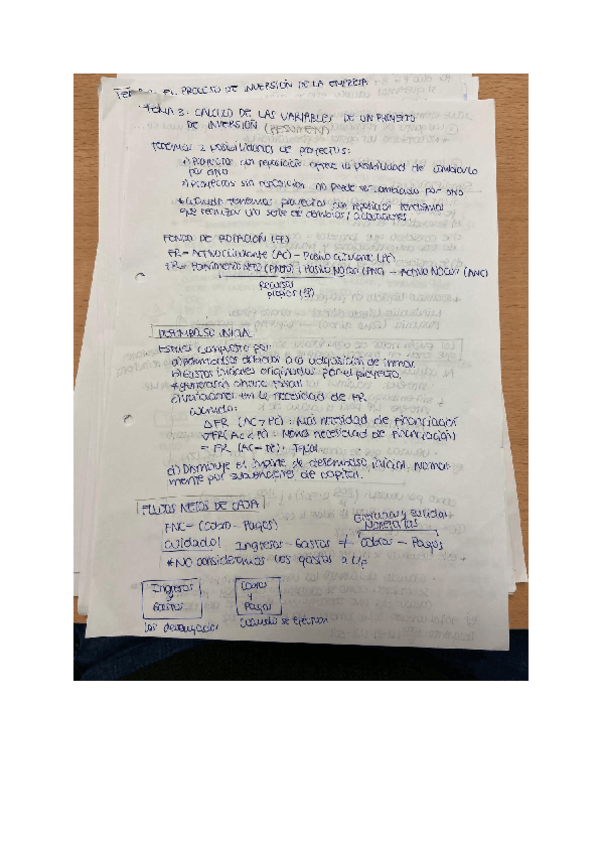 EL PROCESO DE INVERSIÓN DE LA EMPRESA
TEMA 3: CALCULO DE LAS VARIABLES DE UN PROYECTO
DE INVERSIÓN (RESUMEN)
Tenemos 2 posibilidades de proyectos:
1) Proyectos con reposición ofrece la posibilidad de cambiarlo
por otro
2) Proyectos sin reposición no puede ser cambiado por otro
* Cuando tenemos proyectos con reposición tendremos
que realizar una serie de cambios / aclaraciones.
FONDO DE ROTACIÓN (FR)
FR = Activo Circulante (AC) - Pasivo Circulante (PC)
FR = Patrimonio Neto (PNeto) + Pasivo No Cor (PNC) - Activo No Cor (ANC)
Recursos
propios
DESEMBOLSO INICIAL
Estará compuesto por:
a) Desembolsos debidos a la adquisición de inmov.
b) Gastos iniciales originados por el proyecto.
* generará ahorro fiscal
c) Variaciones en la necesidad de FR.
cuando:
△FR (AC > PC): Más necesidad de financiación
▽FR (AC < PC): Menos necesidad de financiación
= FR (AC = PC): Igual
d) Disminuye el importe de desembolso inicial. Normal
mente por subvenciones de capital.
FLUJOS NETOS DE CAJA
FNC = (Cobro - Pagos)
Entradas y salidas
monetarias
Cuidado! Ingresos - Gastos ≠ Cobros - Pagos
* No consideramos los gastos
Ingresos
y
Gastos
Cobros
y
Pagos
Cuando se ejecutan